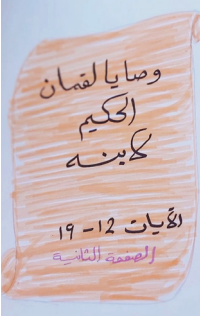 وصايا لقمان
الحكيم
لابنه
الآيات 12 - 19
الصفحة الثانية